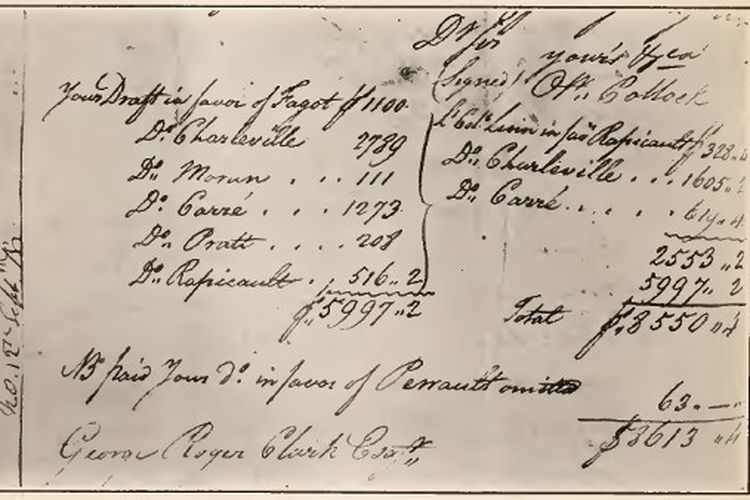 Dr Sir
your's &ca
(Signed) Olr. Pollock
Your Draft in favor of Fagot $ 1100
Do. Charleville 2789
Do. Moran . . . 111
Do. Carré . . . 1273
Do. Pratt . . . . 208
Do. Rapicault . . 516..2
$ 5997..2
Lt Col. Linn in favr Rapicault $ 328..
Do. Charleville . . . 1605..2
Do. Carré . . . . 619..4
2553..2
5997..2
Total $ 8550..4
NB paid Your do. in favor of Perrault omitted
63..—..
$ 8613..4
George Roger Clark Esqr.
No. 12th Septr